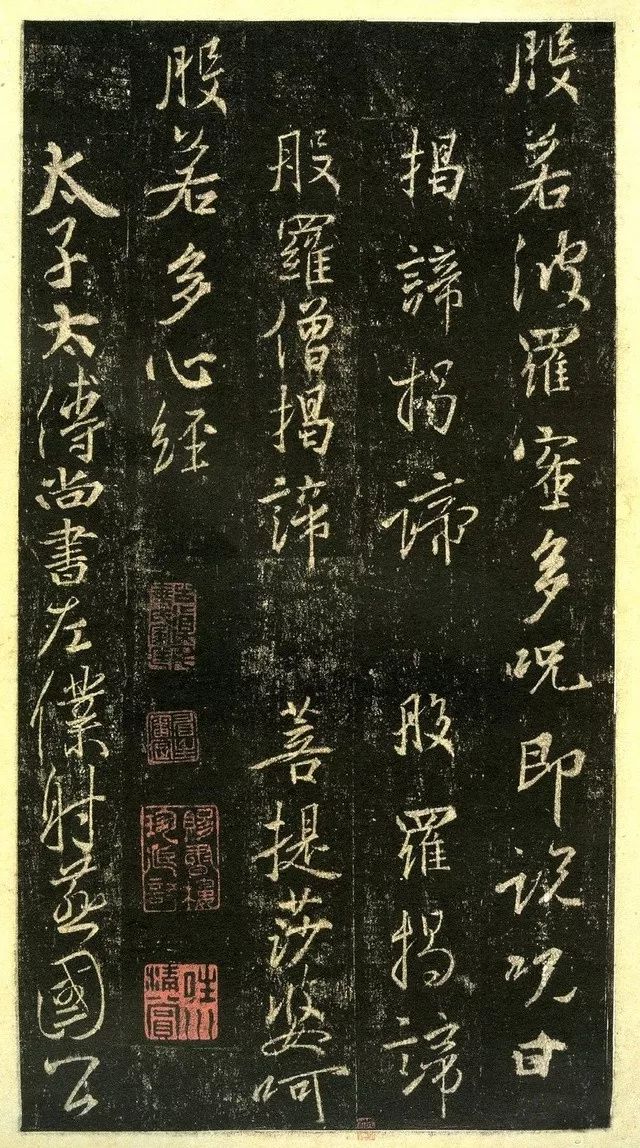 般若波羅蜜多呪即說呪曰
揭諦揭諦 般羅揭諦
般羅僧揭諦 菩提莎婆呵
般若多心經
太子太傅尚書左僕射燕國公